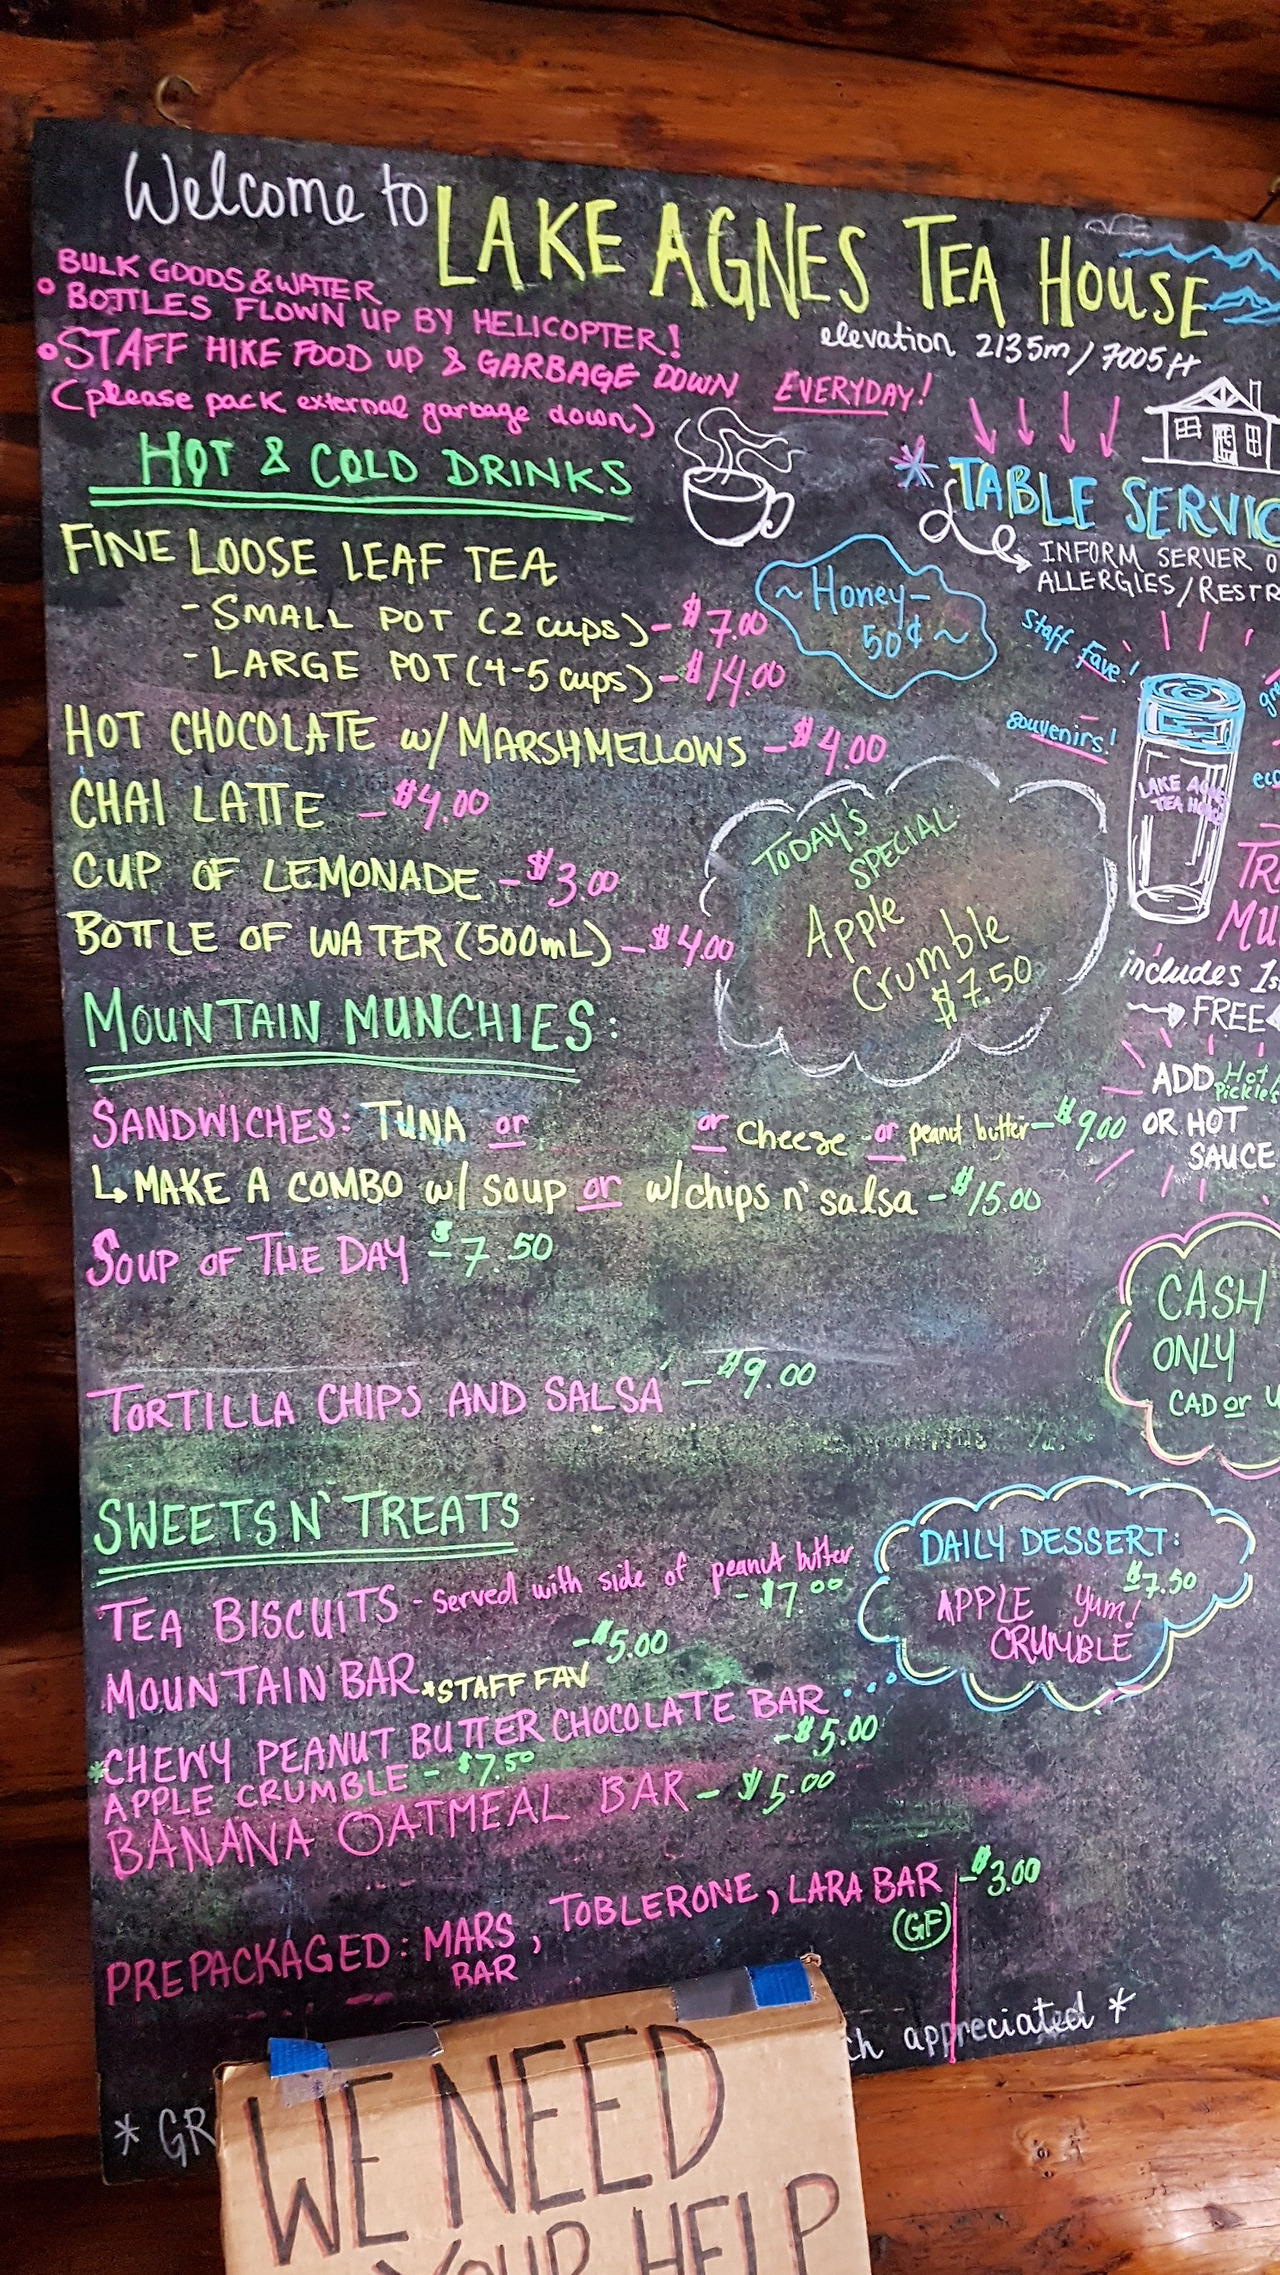 Welcome to LAKE AGNES TEA HOUSE
elevation 2135m / 7005ft
BULK GOODS & WATER
BOTTLES FLOWN UP BY HELICOPTER!
STAFF HIKE FOOD UP & GARBAGE DOWN EVERYDAY!
(please pack external garbage down)
HOT & COLD DRINKS
FINE LOOSE LEAF TEA
- SMALL POT (2 cups) - $7.00
- LARGE POT (4-5 cups) - $14.00
~ Honey -
50¢ ~
HOT CHOCOLATE w/ MARSHMELLOWS - $4.00
CHAI LATTE - $4.00
CUP OF LEMONADE - $3.00
BOTTLE OF WATER (500mL) - $4.00
TODAY'S
SPECIAL:
Apple
Crumble
$7.50
* TABLE SERVIC
INFORM SERVER O
ALLERGIES / RESTR
Staff Fave!
souvenirs!
LAKE AGNES
TEA HOUSE
eco
TRA
MU
includes 1s
FREE
ADD Hot
Pickles
OR HOT
SAUCE
MOUNTAIN MUNCHIES:
SANDWICHES: TUNA or or cheese or peanut butter - $9.00
↳ MAKE A COMBO w/ soup or w/ chips n' salsa - $15.00
SOUP OF THE DAY - $7.50
TORTILLA CHIPS AND SALSA - $9.00
CASH
ONLY
CAD or U
SWEETS N' TREATS
TEA BISCUITS - served with side of peanut butter
- $7.00
MOUNTAIN BAR *STAFF FAV - $5.00
*CHEWY PEANUT BUTTER CHOCOLATE BAR
- $5.00
APPLE CRUMBLE - $7.50
BANANA OATMEAL BAR - $5.00
DAILY DESSERT:
$7.50
APPLE Yum!
CRUMBLE
PREPACKAGED: MARS BAR, TOBLERONE, LARA BAR - $3.00
(GF)
* GR
ch appreciated *
WE NEED
YOUR HELP